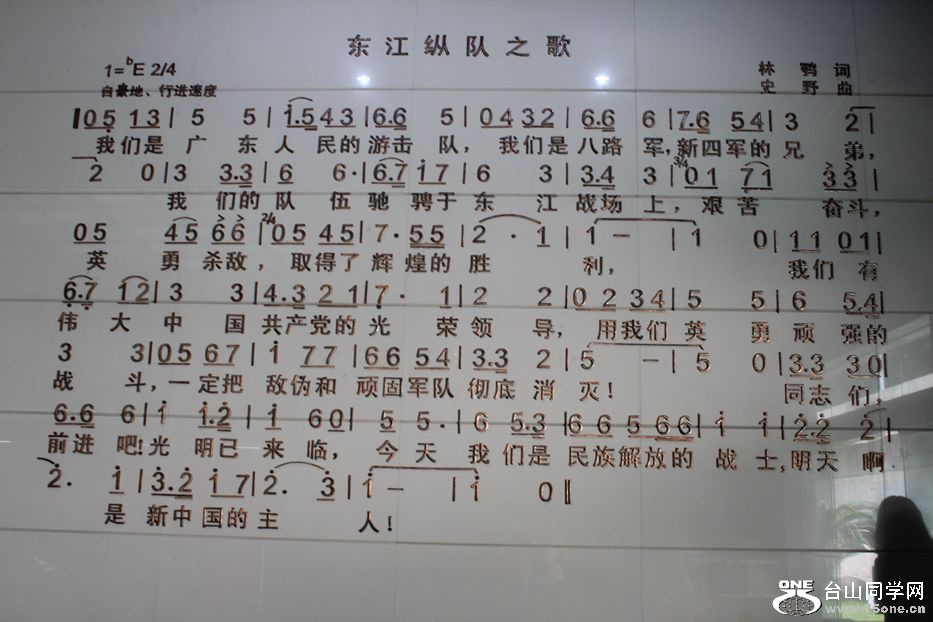 东江纵队之歌
1=ᵇE 2/4
林鹗词
自豪地、行进速度
史野曲
05 13 | 5 5 | 1.5 43 | 6.6 5 | 04 32 | 6.6 6 | 7.6 54 | 3 2 |
我们是广东人民的游击队，我们是八路军，新四军的兄弟，
2 0 | 3 3.3 | 6 6· | 6.7 17 | 6 3 | 3.4 3 | 3/4 01 71 33 |
我们的队伍驰骋于东江战场上，艰苦奋斗，
05 45 66 | 2/4 05 45 | 7·55 | 2·1 | 1 － | 1 0 | 11 01 |
英勇杀敌，取得了辉煌的胜利，我们有
6.7 12 | 3 3 | 4.3 21 | 7·1 | 2 2 | 02 34 | 5 5 | 6 5.4 |
伟大中国共产党的光荣领导，用我们英勇顽强的
3 3 | 05 67 | 1 77 | 66 54 | 3.3 2 | 5 － | 5 0 | 3.3 30 |
战斗，一定把敌伪和顽固军队彻底消灭！同志们，
6.6 6 | 1 1.2 | 1 60 | 5 5· | 6 5.3 | 66 566 | 1 1 | 2.2 2 |
前进吧!光明已来临，今天我们是民族解放的战士,明天啊
2· 1 | 3.2 17 | 2· 3 | 1 － | 1 0 ‖
是新中国的主人！
ONE 台山同学网